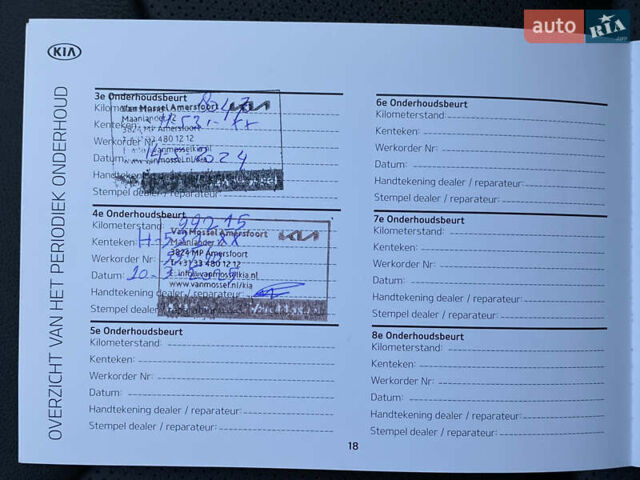 auto RIA
KIA
OVERZICHT VAN HET PERIODIEK ONDERHOUD
3e Onderhoudsbeurt
Van Mossel Amersfoort KIA
Kilometerstand:
Maanlander 2
Kenteken:
3824 MP Amersfoort
Werkorder Nr:
33 480 12 12
Datum: 2024
www.vanmossel.nl/kia
Handtekening dealer
Stempel dealer / reparateur:
4e Onderhoudsbeurt
Kilometerstand: 99215
Van Mossel Amersfoort KIA
Kenteken
Maanlander
3824 MP Amersfoort
Werkorder Nr:
+31 33 480 12 12
Datum: 10-3-2025
info@vanmosselkia.nl
www.vanmossel.nl/kia
Handtekening dealer / reparateur
Stempel dealer / reparateur:
5e Onderhoudsbeurt
Kilometerstand:
Kenteken:
Werkorder Nr:
Datum:
Handtekening dealer / reparateur:
Stempel dealer / reparateur:
6e Onderhoudsbeurt
Kilometerstand:
Kenteken:
Werkorder Nr:
Datum:
Handtekening dealer / reparateur:
Stempel dealer / reparateur:
7e Onderhoudsbeurt
Kilometerstand:
Kenteken:
Werkorder Nr:
Datum:
Handtekening dealer / reparateur:
Stempel dealer / reparateur:
8e Onderhoudsbeurt
Kilometerstand:
Kenteken:
Werkorder Nr:
Datum:
Handtekening dealer / reparateur:
Stempel dealer / reparateur:
18